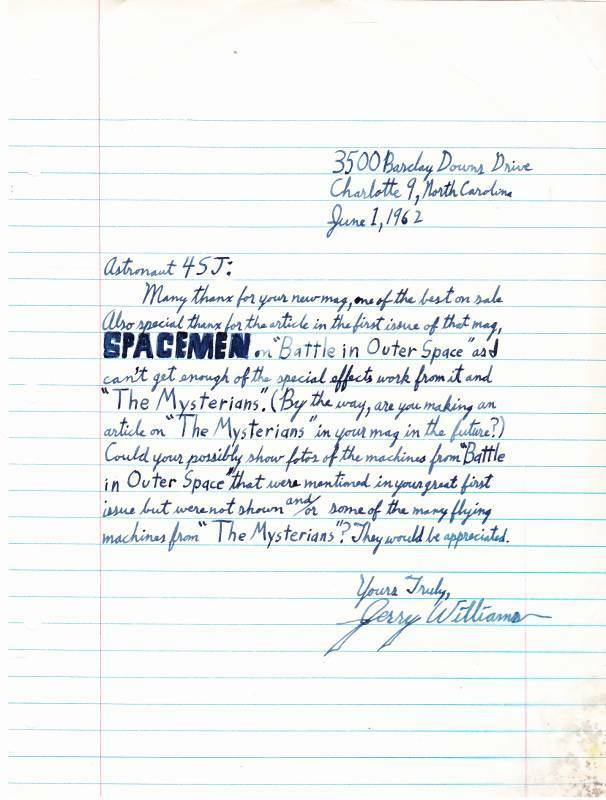 3500 Barclay Downs Drive
Charlotte 9, North Carolina
June 1, 1962
Astronaut 4SJ:
Many thanx for your new mag, one of the best on sale
Also special thanx for the article in the first issue of that mag,
SPACEMEN on "Battle in Outer Space" as I
can't get enough of the special effects work from it and
"The Mysterians". (By the way, are you making an
article on "The Mysterians" in your mag in the future?)
Could your possibly show fotos of the machines from "Battle
in Outer Space" that were mentioned in your great first
issue but were not shown and/or some of the many flying
machines from "The Mysterians"? They would be appreciated.
Yours Truly,
Jerry Williams